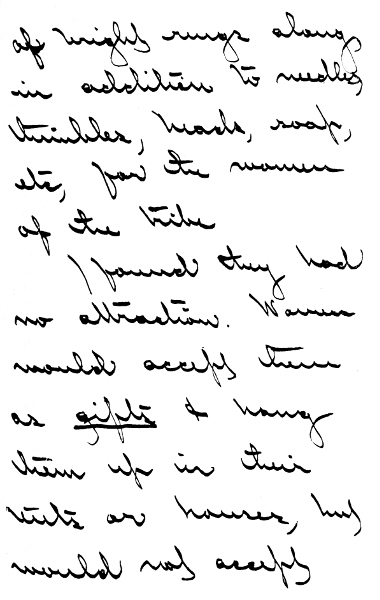 of bright rugs along,
in addition to needles,
thimbles, beads, soap,
etc, for the women
of the tribe
I found they had
no attraction. Women
would accept them
as gifts & hang
them up in their
tents or houses, but
would not accept